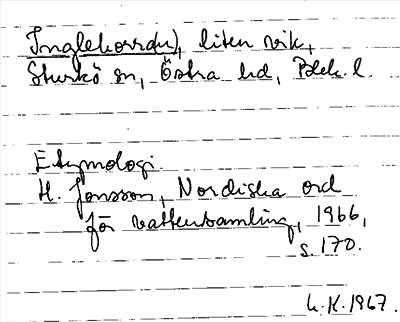 Inglekorrdu), liten vik,
Sturkö sn, Östra hd, Blek. l.
Etymologi
H. Jonsson, Nordiska ord
för vattensamling, 1966,
s. 170.
L. K. 1967.